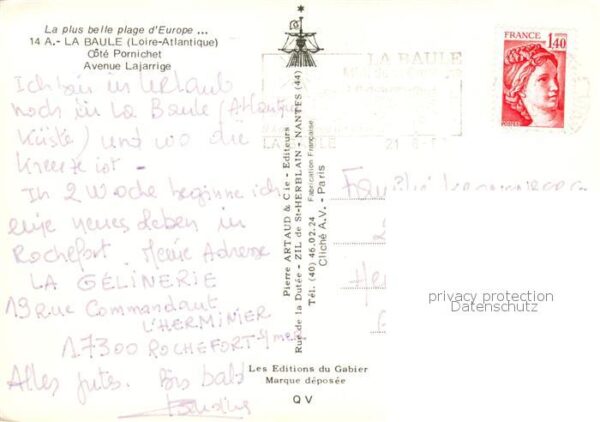 La plus belle plage d'Europe ...
14 A.- LA BAULE (Loire-Atlantique)
Côté Pornichet
Avenue Lajarrige
Ich bin in Urlaub
noch in La Baule (Atlantique
Küste) und wo die
ist -
In 2 Woche beginne ich
eine neues Leben in
Rochefort. Meine Adresse
LA GÉLINERIE
19 Rue Commandant
L'HERMINIER
17300 ROCHEFORT s/mer
Alles gutes. Bis bald
Pierre ARTAUD & Cie - Editeurs
Rue de la Dutée - ZIL de St-HERBLAIN - NANTES (44)
Tél. (40) 46.02.24 Fabrication Française
Cliché A.V. - Paris
Les Editions du Gabier
Marque déposée
QV
LA BAULE
FRANCE
1,40
POSTES
privacy protection
Datenschutz